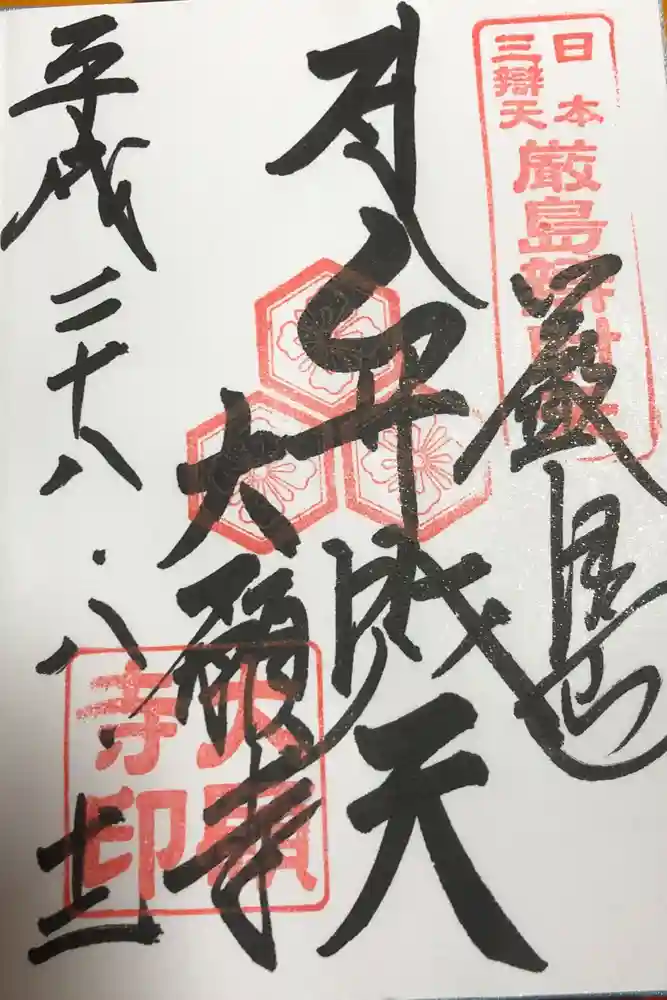 日本
三辯天
厳島辯財天
嚴島
弁財天
大願寺
大願
寺印
平成二十八・八・十三